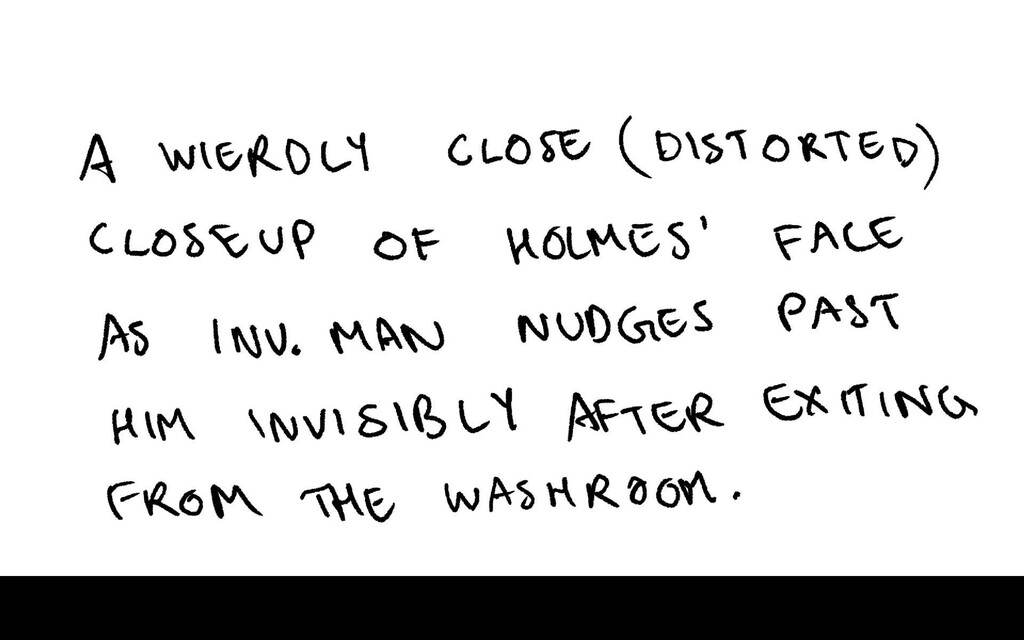 A WIERDLY CLOSE (DISTORTED)
CLOSEUP OF HOLMES' FACE
AS INV. MAN NUDGES PAST
HIM INVISIBLY AFTER EXITING
FROM THE WASHROOM.